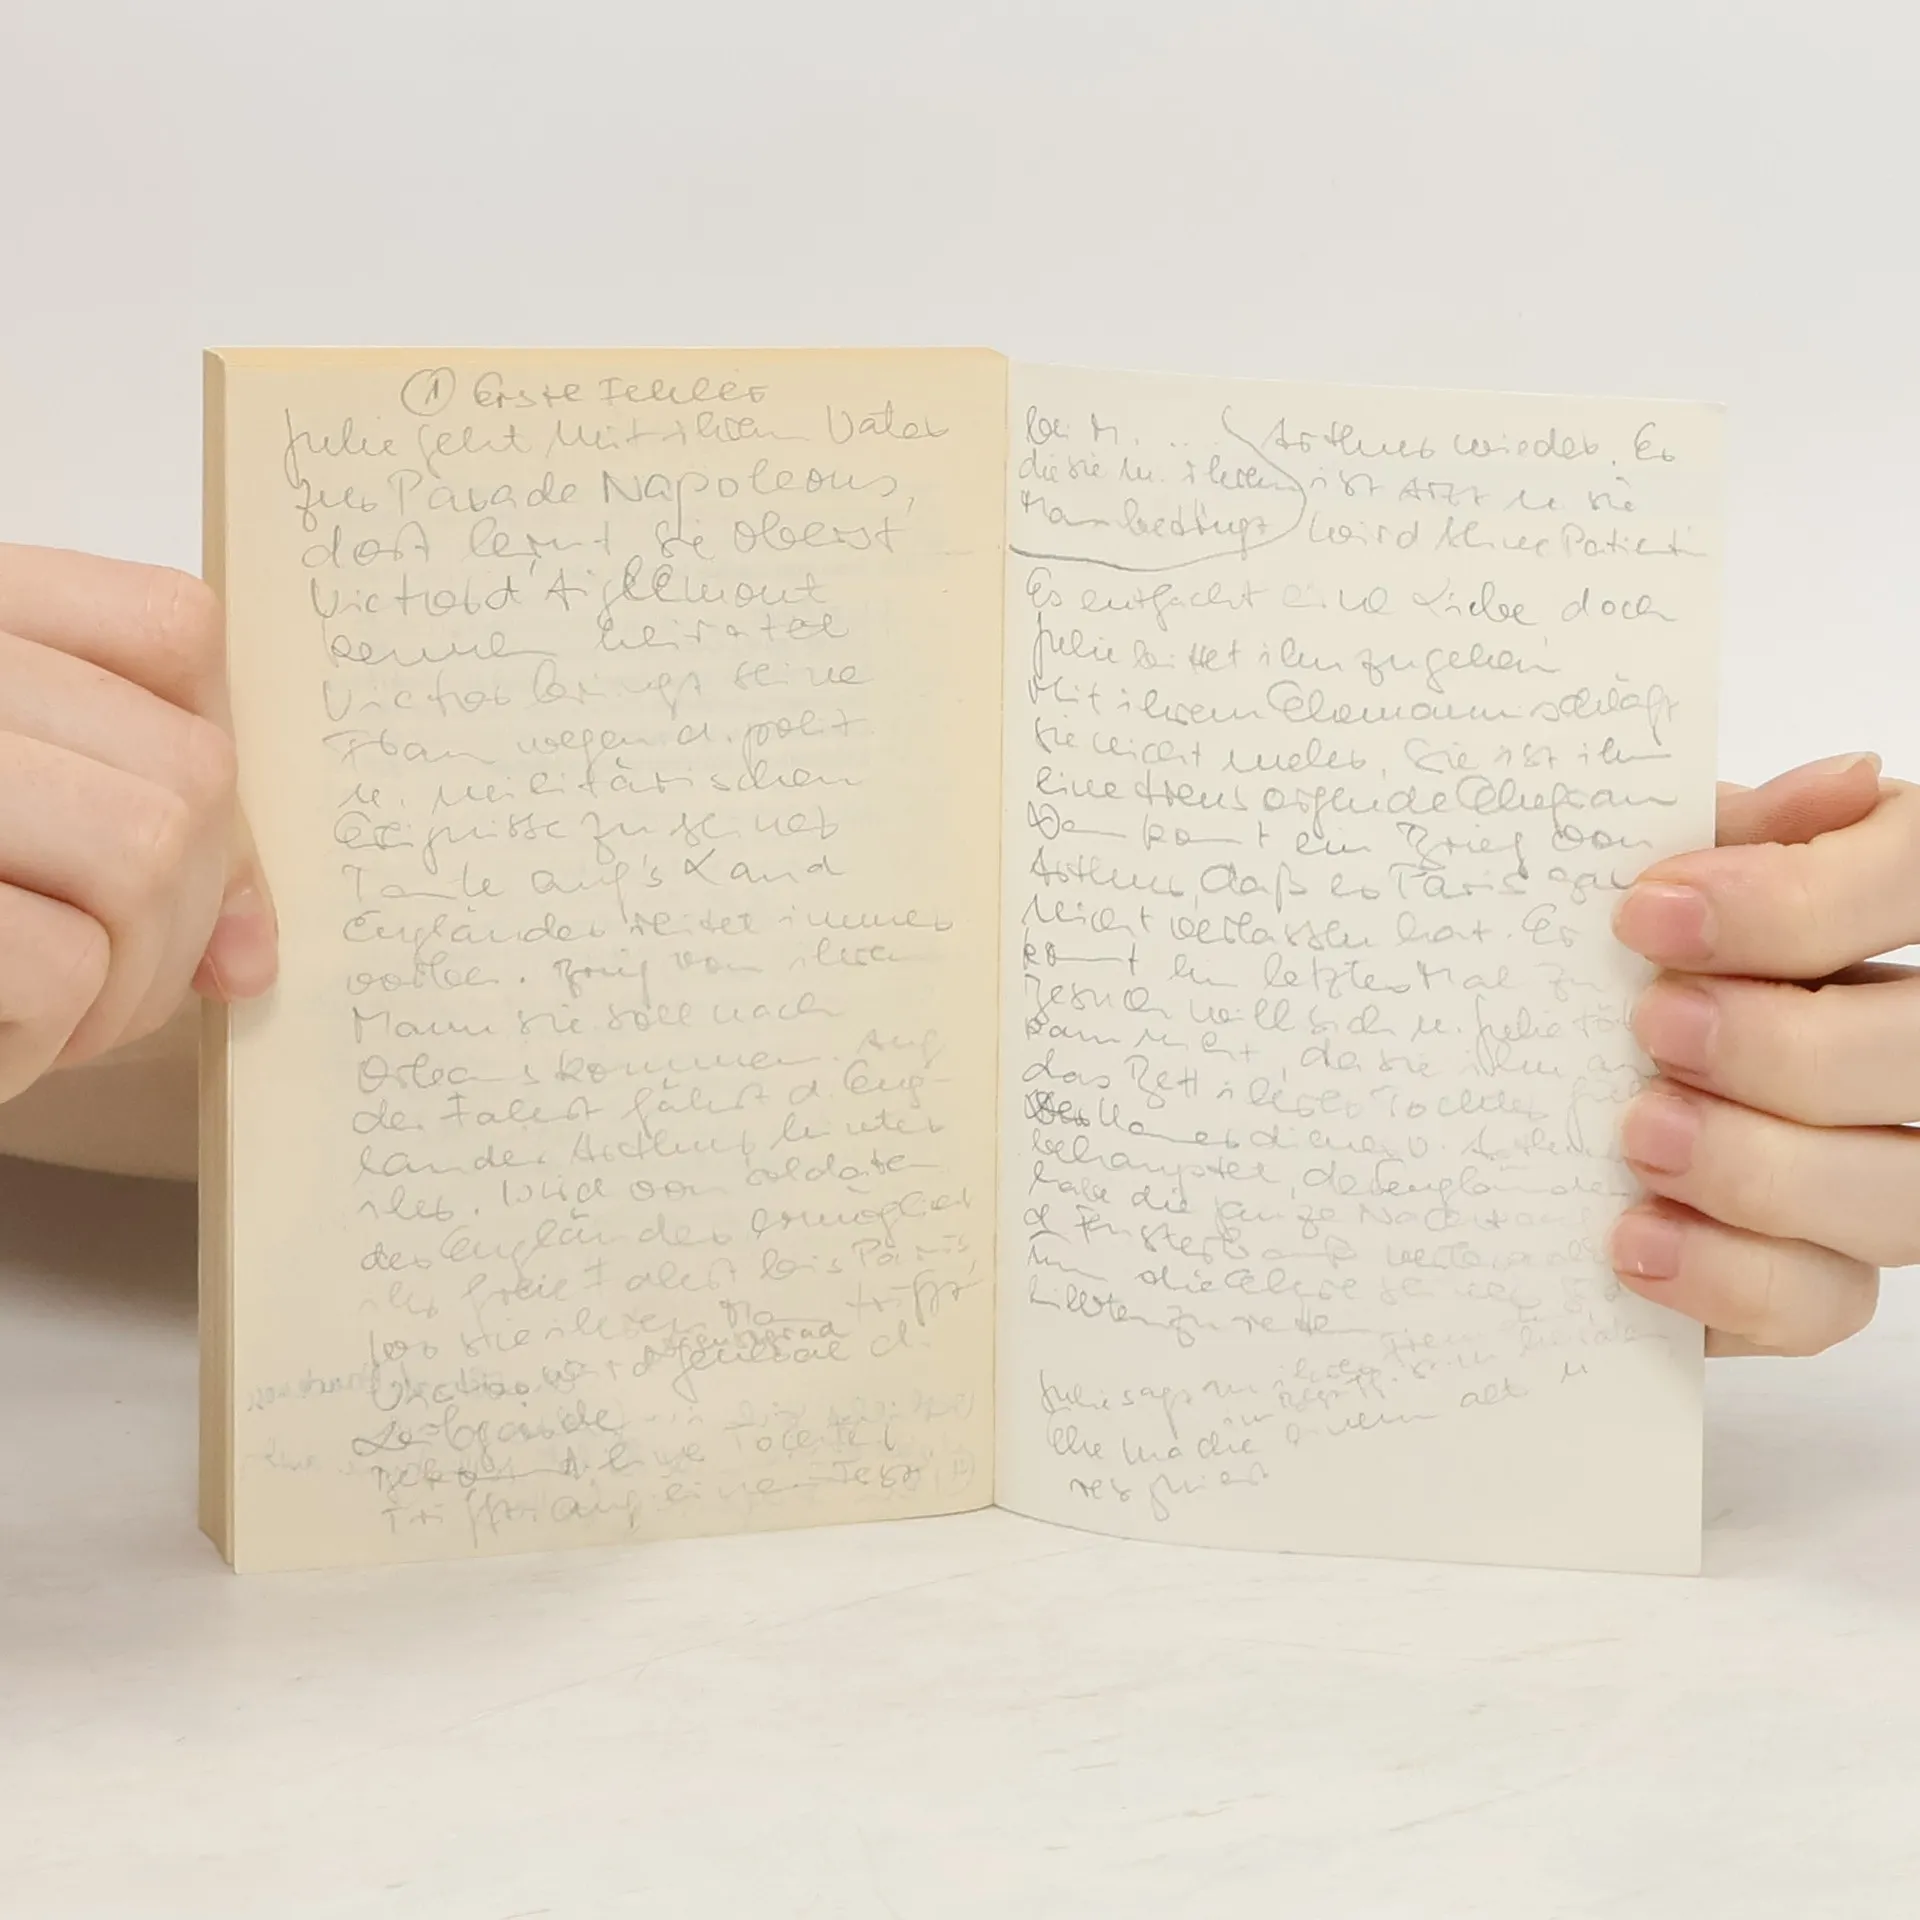 ① Erste Fehler
Julie geht mit ihrem Vater
zur Parade Napoleons,
dort lernt sie Oberst
Victor d'Aiglemont
kennen heiratet
Victor bringt seine
Frau wegen d. polit.
u. militärischen
Ereignisse zu seiner
Tante auf's Land
Engländer reitet immer
vorbei. Brief von ihrem
Mann sie soll nach
Orleans kommen. Auf
der Fahrt fährt d. Eng-
länder Arthur hinter
ihr. Wird von Soldaten
der Engländer ermöglicht
ihr freie Fahrt bis Paris,
wo sie ihren Mann trifft
Victor wird General d.
Leibgarde
Bekommt eine Tochter
Trifft auf einem Fest
bei M. ...
die sie u. ihren
Mann bedingt
Arthur wieder. Er
ist Arzt u. sie
wird seine Patientin
Es entfacht eine Liebe doch
Julie bittet ihn zu gehen
Mit ihrem Ehemann schläft
sie nicht mehr. Sie ist ihm
eine treusorgende Ehefrau
Dann kommt ein Brief von
Arthur, daß er Paris gar
nicht verlassen hat. Er
kommt ein letztes Mal zu
Besuch will sich u. Julie
kann nicht, da sie ihn an
das Bett ihrer Tochter
Der Kammerdiener v. Arthur
behauptet, der Engländer
habe die ganze Nacht auf
d. Fensterbank
um die Ehre seiner
zu retten
Julie sagt
Ehe mache einen alt u
resigniert